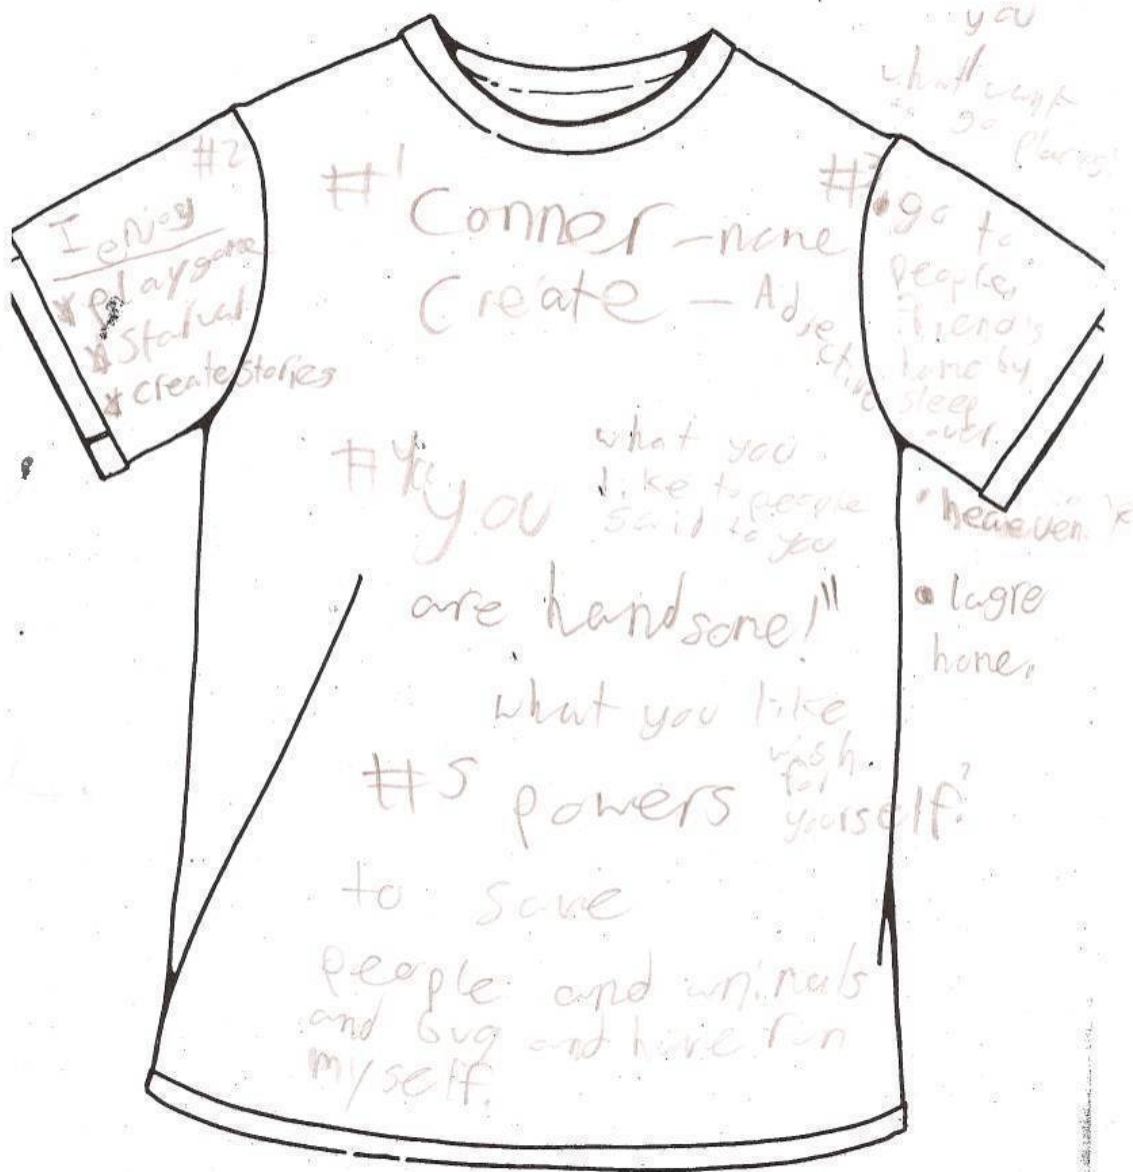 #1
Conner - name
Create - Adjective
#2
I enjoy
* play game
* starval
* create stories
you
what want
to go
places?
#3
• go to
people,
friend's
home by
sleep
over.
• heaeven
• lagre
home.
#4
what you
like to people
said to you
you
are handsome!"
what you like
wish
for
yourself?
#5 powers
to save
people and animals
and bug and have fun
myself.